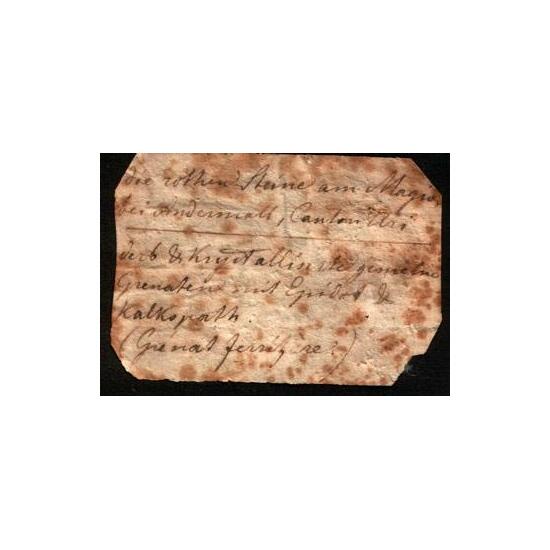 die rothen Steine am Maggio
bei Andermatt, Canton Uri
derb & krystallinische gemeine
Grenaten mit Epidot &
Kalkspath.
(Grenat ferrifère.)